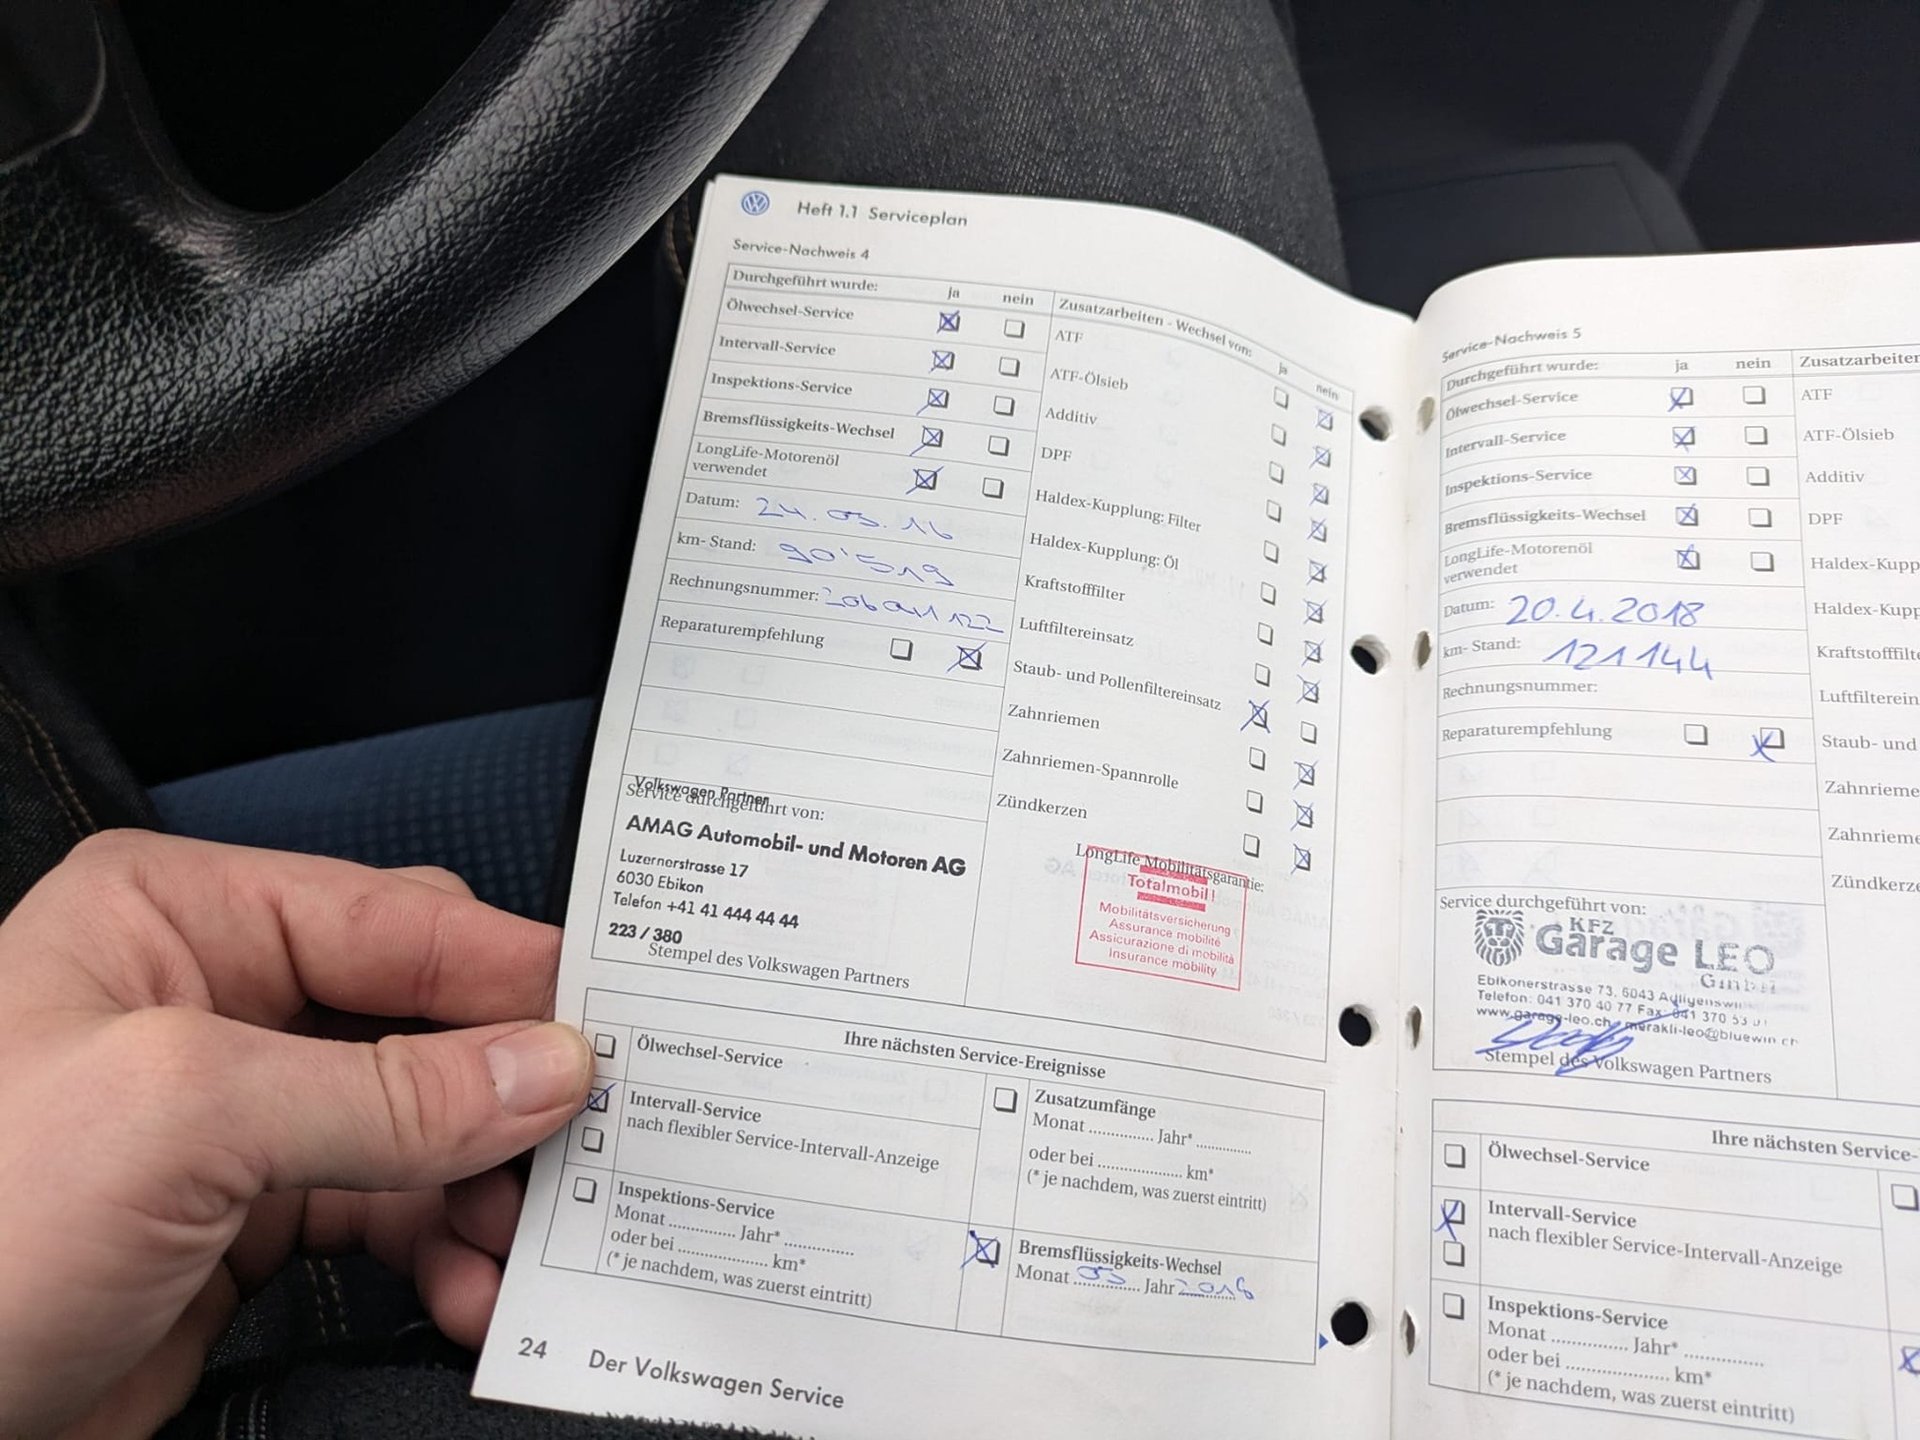 Heft 1.1 Serviceplan
Service-Nachweis 4
Durchgeführt wurde: ja nein
Ölwechsel-Service
Intervall-Service
Inspektions-Service
Bremsflüssigkeits-Wechsel
LongLife-Motorenöl
verwendet
Datum: 24.03.16
km-Stand: 90'519
Rechnungsnummer:
Reparaturempfehlung
Zusatzarbeiten - Wechsel von: ja nein
ATF
ATF-Ölsieb
Additiv
DPF
Haldex-Kupplung: Filter
Haldex-Kupplung: Öl
Kraftstofffilter
Luftfiltereinsatz
Staub- und Pollenfiltereinsatz
Zahnriemen
Zahnriemen-Spannrolle
Zündkerzen
Volkswagen Partner
Service durchgeführt von:
AMAG Automobil- und Motoren AG
Luzernerstrasse 17
6030 Ebikon
Telefon +41 41 444 44 44
223 / 380
Stempel des Volkswagen Partners
LongLife Mobilitätsgarantie:
Totalmobil!
Mobilitätsversicherung
Assurance mobilité
Assicurazione di mobilità
Insurance mobility
Ihre nächsten Service-Ereignisse
Ölwechsel-Service
Intervall-Service
nach flexibler Service-Intervall-Anzeige
Inspektions-Service
Monat .............. Jahr* ..............
oder bei .................... km*
(* je nachdem, was zuerst eintritt)
Zusatzumfänge
Monat .............. Jahr* ..............
oder bei .................... km*
(* je nachdem, was zuerst eintritt)
Bremsflüssigkeits-Wechsel
Monat 03 Jahr 2018
24 Der Volkswagen Service
Service-Nachweis 5
Durchgeführt wurde: ja nein
Ölwechsel-Service
Intervall-Service
Inspektions-Service
Bremsflüssigkeits-Wechsel
LongLife-Motorenöl
verwendet
Datum: 20.4.2018
km-Stand: 121144
Rechnungsnummer:
Reparaturempfehlung
Zusatzarbeiten
ATF
ATF-Ölsieb
Additiv
DPF
Haldex-Kupp
Haldex-Kupp
Kraftstofffilte
Luftfilterein
Staub- und
Zahnrieme
Zahnrieme
Zündkerze
Service durchgeführt von:
KFZ
Garage LEO
GmbH
Ebikonerstrasse 73, 6043 Adligenswil
Telefon: 041 370 40 77 Fax: 041 370
www.garage-leo.ch, merakli-leo@bluewin.ch
Stempel des Volkswagen Partners
Ihre nächsten Service-
Ölwechsel-Service
Intervall-Service
nach flexibler Service-Intervall-Anzeige
Inspektions-Service
Monat .............. Jahr* ..............
oder bei .................... km*
(* je nachdem, was zuerst eintritt)